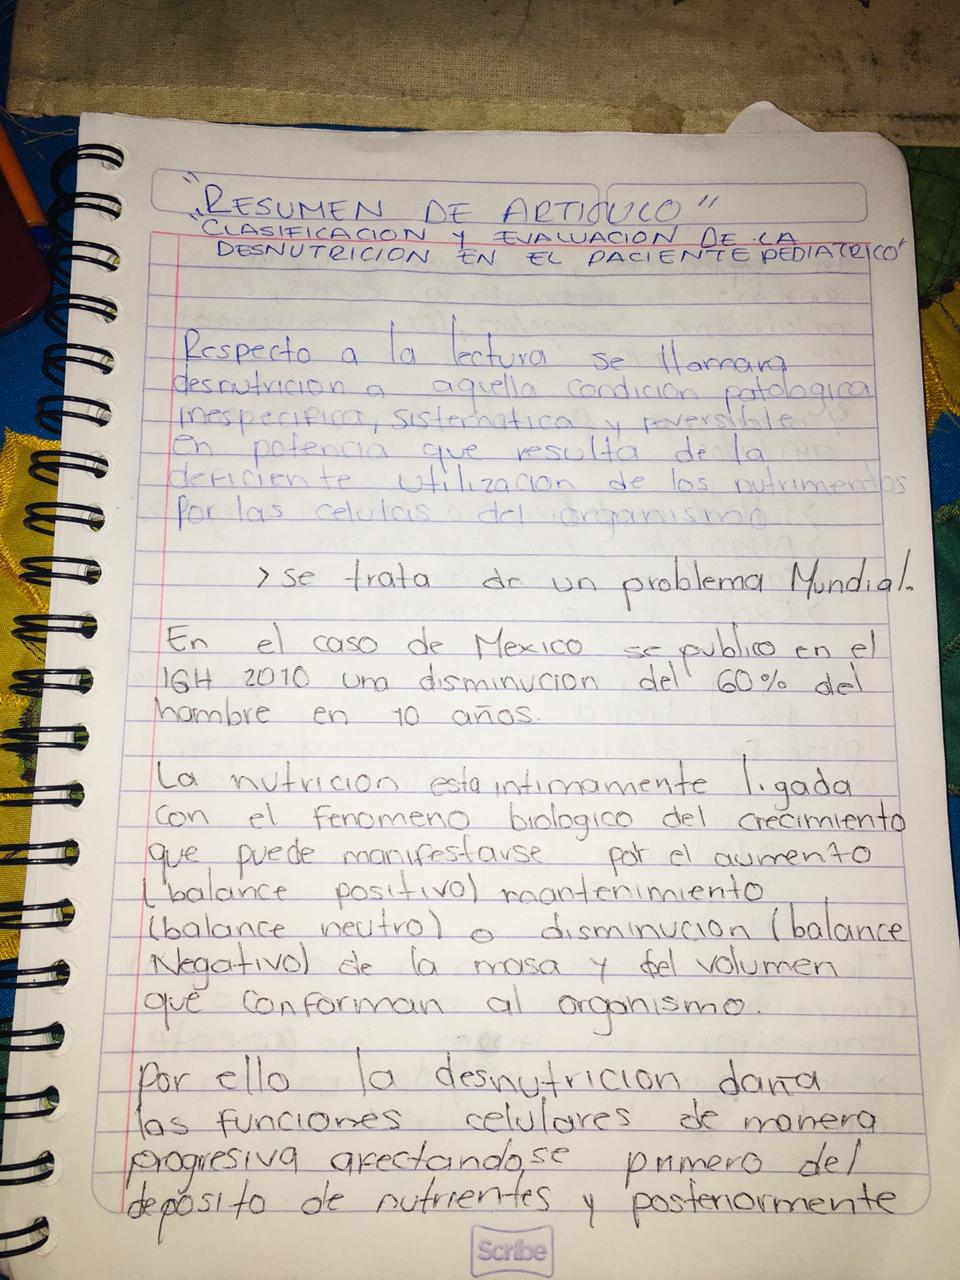 "RESUMEN DE ARTICULO"
"CLASIFICACION Y EVALUACION DE LA
DESNUTRICION EN EL PACIENTE PEDIATRICO"
Respecto a la lectura se llamara
desnutricion a aquella condición patologica
inespecifica, sistematica y reversible
en potencia que resulta de la
deficiente utilizacion de los nutrimentos
Por las celulas del organismo.
> se trata de un problema Mundial.
En el caso de Mexico se publico en el
IGH 2010 una disminucion del 60% del
hambre en 10 años.
La nutricion esta intimamente ligada
con el fenomeno biologico del crecimiento
que puede manifestarse por el aumento
(balance positivo) mantenimiento
(balance neutro) o disminucion (balance
Negativo) de la masa y del volumen
que conforman al organismo.
Por ello la desnutricion daña
las funciones celulares de manera
progresiva afectandose primero del
deposito de nutrientes y posteriormente
Scribe